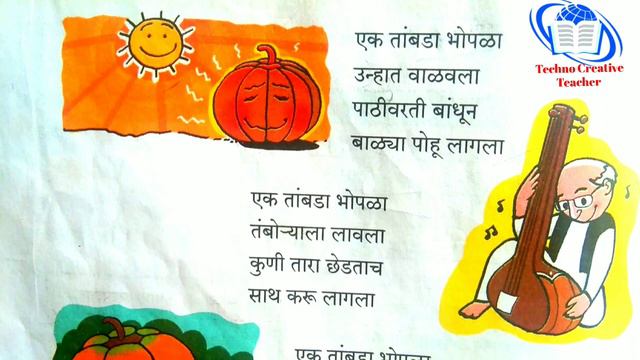 एक तांबडा भोपळा
उन्हात वाळवला
पाठीवरती बांधून
बाळ्या पोहू लागला
Techno Creative
Teacher
एक तांबडा भोपळा
तंबोऱ्याला लावला
कुणी तारा छेडताच
साथ करू लागला
एक तांबडा भोपळा